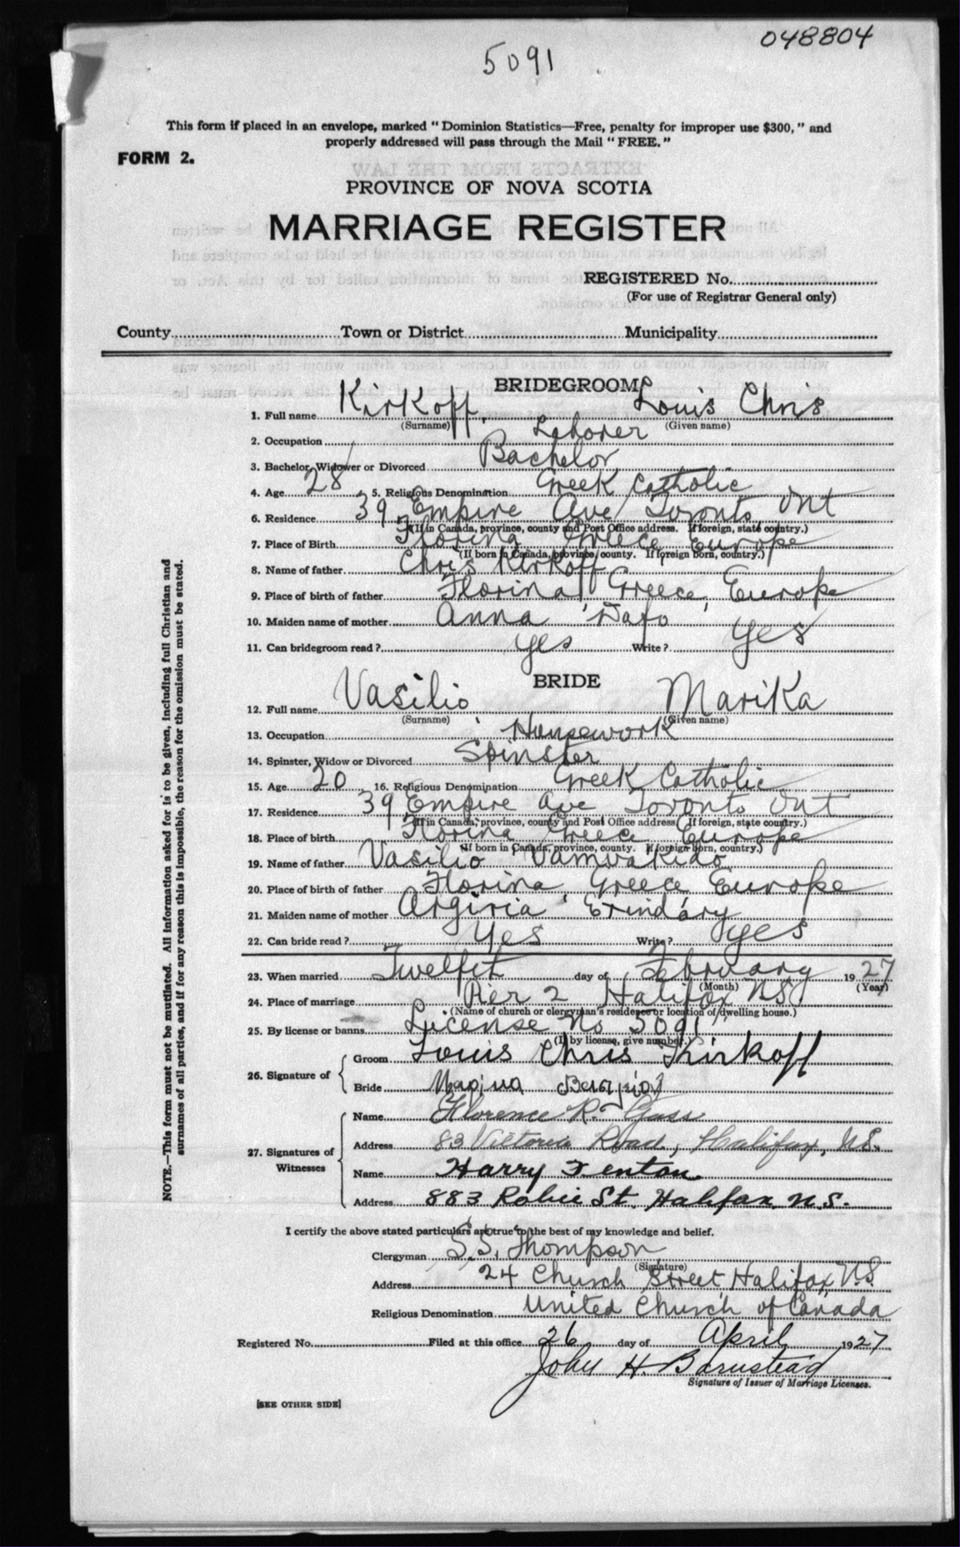 048804
5091
This form if placed in an envelope, marked "Dominion Statistics—Free, penalty for improper use $300," and
properly addressed will pass through the Mail "FREE."
FORM 2.
PROVINCE OF NOVA SCOTIA
MARRIAGE REGISTER
REGISTERED No.
(For use of Registrar General only)
County Town or District Municipality
BRIDEGROOM
1. Full name Kirkoff Louis Chris
(Surname) (Given name)
2. Occupation Laborer
3. Bachelor, Widower or Divorced Bachelor
4. Age 28 5. Religious Denomination Greek Catholic
6. Residence 39 Empire Ave Toronto Ont
(If in Canada, province, county and Post Office address. If foreign, state country.)
7. Place of Birth Florina Greece Europe
(If born in Canada, province, county. If foreign born, country.)
8. Name of father Chris Kirkoff
9. Place of birth of father Florina Greece, Europe
10. Maiden name of mother Anna Dafo
11. Can bridegroom read? yes Write? yes
BRIDE
12. Full name Vasilio Marika
(Surname) (Given name)
13. Occupation Housework
14. Spinster, Widow or Divorced Spinster
15. Age 20 16. Religious Denomination Greek Catholic
17. Residence 39 Empire Ave Toronto Ont
(If in Canada, province, county and Post Office address. If foreign, state country.)
18. Place of birth Florina Greece Europe
(If born in Canada, province, county. If foreign born, country.)
19. Name of father Vasilio Vamvakido
20. Place of birth of father Florina, Greece, Europe
21. Maiden name of mother Argiria
22. Can bride read? Yes Write? yes
23. When married Twelfth day of February 1927
(Month) (Year)
24. Place of marriage Pier 2 Halifax NS
(Name of church or clergyman's residence or location of dwelling house.)
25. By license or banns License No 5091
(If by license, give number.)
26. Signature of Groom Louis Chris Kirkoff
Bride
27. Signatures of Witnesses Name Florence R. Gass
Address 83 Victoria Road, Halifax, N.S.
Name Harry Fenton
Address 883 Robie St. Halifax, N.S.
I certify the above stated particulars are true to the best of my knowledge and belief.
Clergyman S.S. Thompson
(Signature)
Address 24 Church Street Halifax, N.S.
Religious Denomination United Church of Canada
Registered No. Filed at this office 26 day of April 1927
John H Barnstead
Signature of Issuer of Marriage Licenses.
[SEE OTHER SIDE]
NOTE.—This form must not be mutilated. All information asked for is to be given, including full Christian and
surnames of all parties, and if for any reason this is impossible, the reason for the omission must be stated.